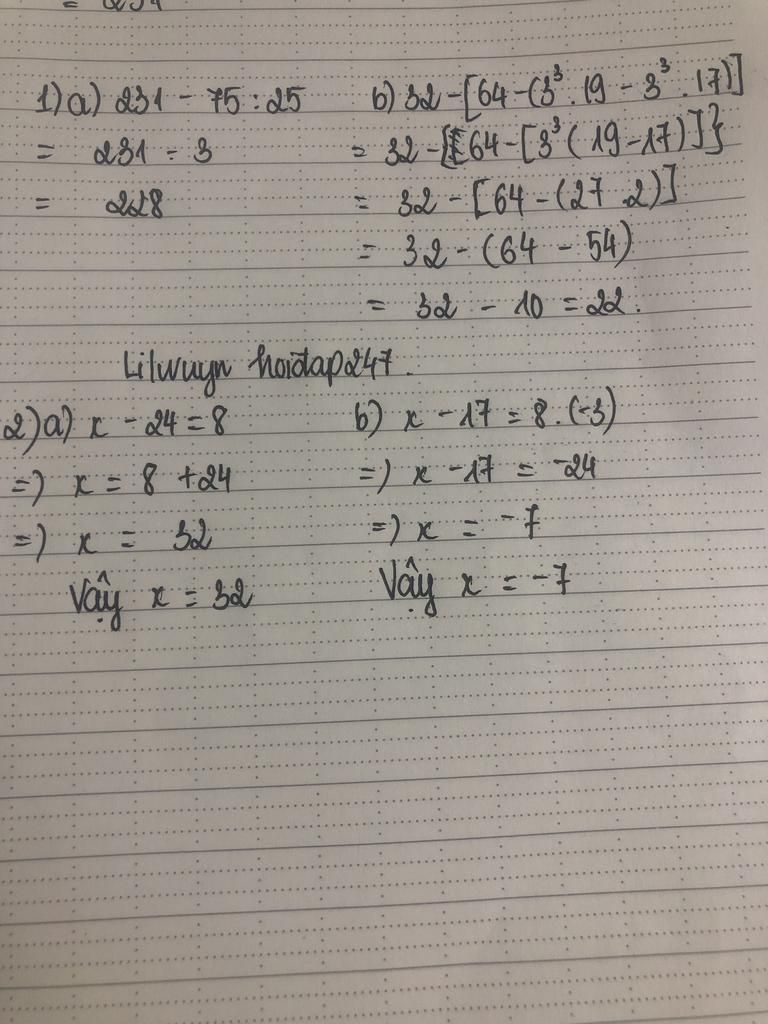 = 234
1) a) 231 - 75 : 25
= 231 - 3
= 228
b) 32 - [64 - (3³ . 19 - 3³ . 17)]
= 32 - {64 - [3³ ( 19 - 17)]}
= 32 - [64 - (27 . 2)]
= 32 - (64 - 54)
= 32 - 10 = 22.
Lilwuyn hoidap247.
2) a) x - 24 = 8
=) x = 8 + 24
=) x = 32
Vậy x = 32
b) x - 17 = 8 . (-3)
=) x - 17 = -24
=) x = -7
Vậy x = -7